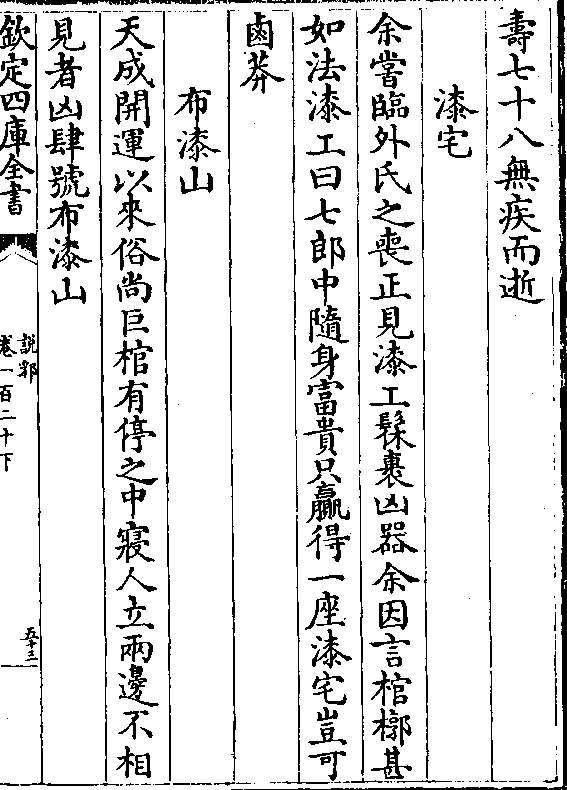 壽七十八無疾而逝
漆宅
余嘗臨外氏之喪正見漆工髹裹凶器余因言棺槨甚
如法漆工曰七郎中隨身富貴只贏得一座漆宅豈可
鹵莽
布漆山
天成開運以來俗尚巨棺有停之中寢人立兩邊不相
見者凶肆號布漆山
欽定四庫全書
説郛
卷一百二十下
五十三